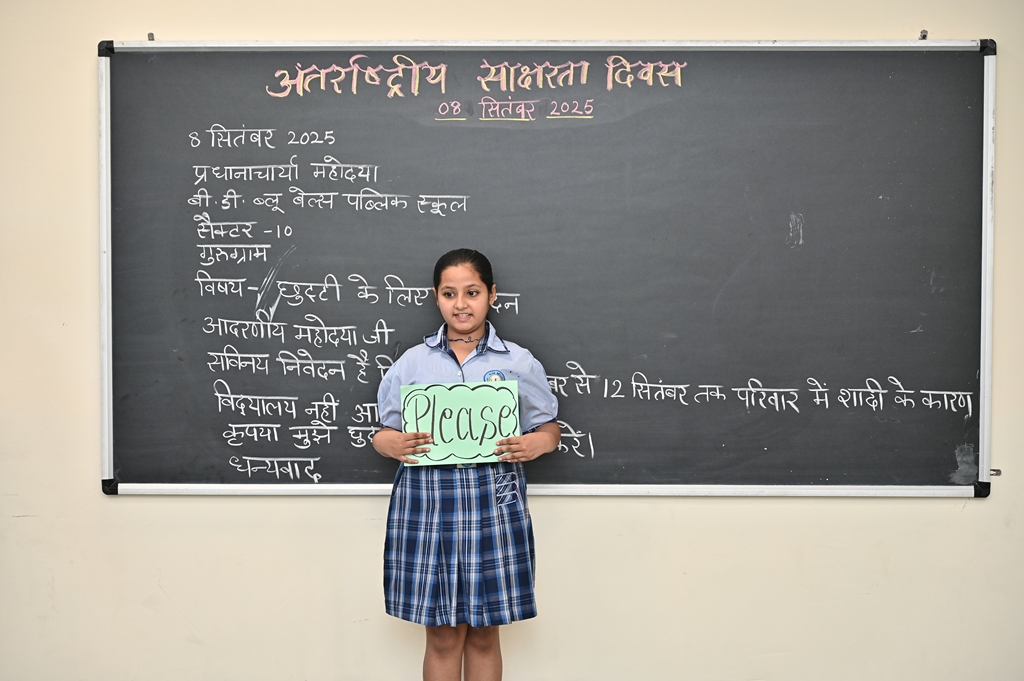 अंतर्राष्ट्रीय साक्षरता दिवस
08 सितंबर 2025
8 सितंबर 2025
प्रधानाचार्या महोदया
बी.डी. ब्लू बेल्स पब्लिक स्कूल
सैक्टर -10
गुरुग्राम
विषय- छुट्टी के लिए दन
आदरणीय महोदया जी
सविनय निवेदन है से 12 सितंबर तक परिवार में शादी के कारण
विद्यालय नहीं आ
कृपया मुझे करें।
धन्यवाद
Please